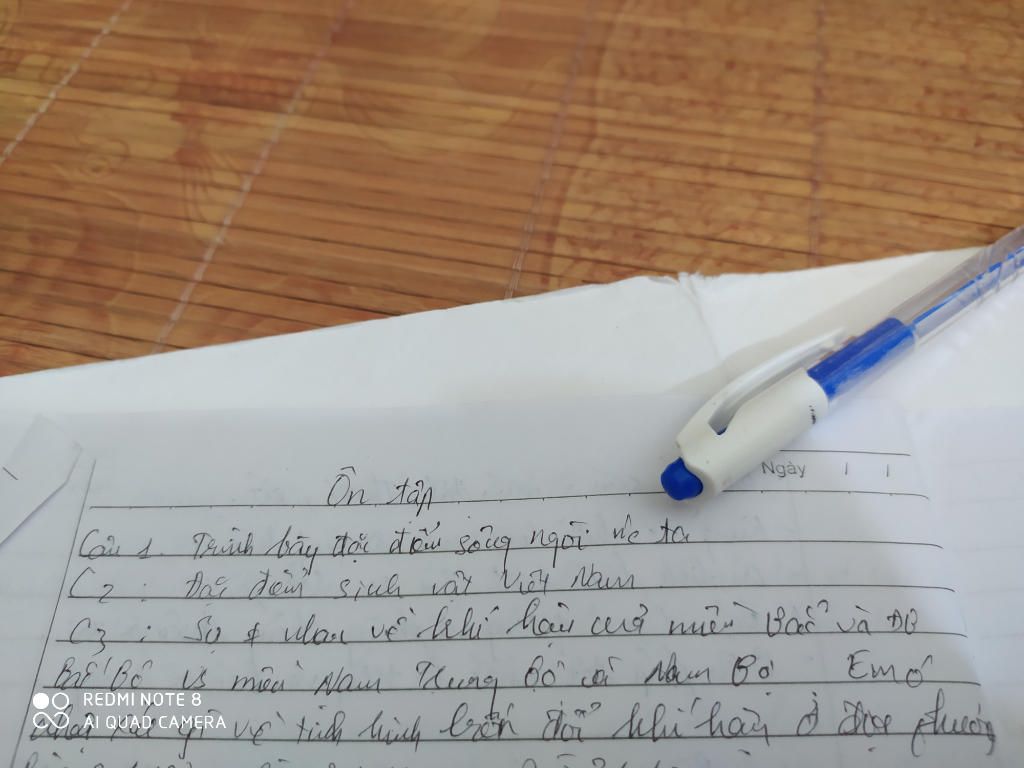 Ngày
Ôn tập
Câu 1. Trình bày đặc điểm sông ngòi nc ta
C2 : Đặc điểm sinh vật Việt Nam
C3 : Sự ≠ nhau về khí hậu của miền Bắc và ĐB
Bắc Bộ vs miền Nam Trung Bộ và Nam Bộ Em có
về tình hình biến đổi khí hậu ở địa phương
REDMI NOTE 8
AI QUAD CAMERA